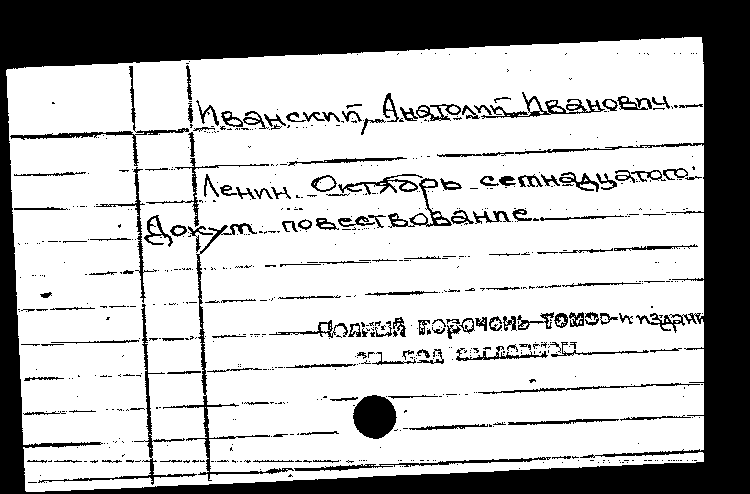 Иванский, Анатолий Иванович
Ленин. Октябрь семнадцатого:
Докум. повествование.
Полный перечень томов и издани
см. под заглавием